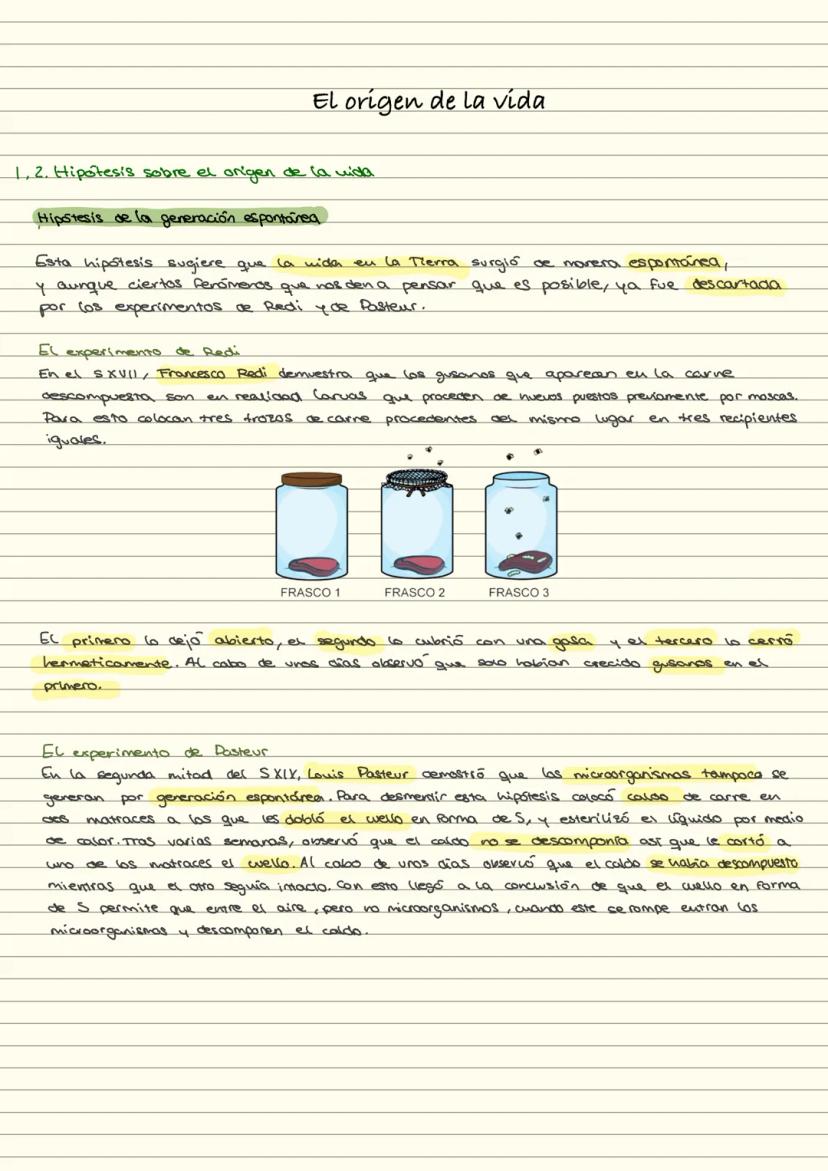 El origen de la vida
1, 2. Hipótesis sobre el origen de la vida
Hipótesis de la generación espontánea
Esta hipótesis sugiere que la vida en la Tierra surgió de manera espontánea,
y aunque ciertos fenómenos que nos den a pensar que es posible, ya fue descartada
por los experimentos de Redi y de Pasteur.
El experimento de Redi
En el SXVII, Francesco Redi demuestra que los gusanos que aparecen en la carne
descompuesta son en realidad larvas que proceden de huevos puestos previamente por moscas.
Para esto colocan tres trozos de carne procedentes del mismo lugar en tres recipientes
iguales.
FRASCO 1 FRASCO 2 FRASCO 3
El primero lo dejó abierto, el segundo lo cubrió con una gasa y el tercero lo cerró
hermeticamente. Al cabo de unos días observó que solo habían crecido gusanos en el
primero.
El experimento de Pasteur
En la segunda mitad del SXIX, Louis Pasteur demostró que los microorganismos tampoco se
generan por generación espontánea. Para desmentir esta hipótesis colocó caldo de carne en
dos matraces a los que les dobló el cuello en forma de S, y esterilizó el líquido por medio
de calor. Tras varias semanas, observó que el caldo no se descomponía así que le cortó a
uno de los matraces el cuello. Al cabo de unos días observó que el caldo se había descompuesto
mientras que el otro seguía intacto. Con esto llegó a la conclusión de que el cuello en forma
de S permite que entre el aire, pero no microorganismos, cuando este se rompe entran los
microorganismos y descomponen el caldo.